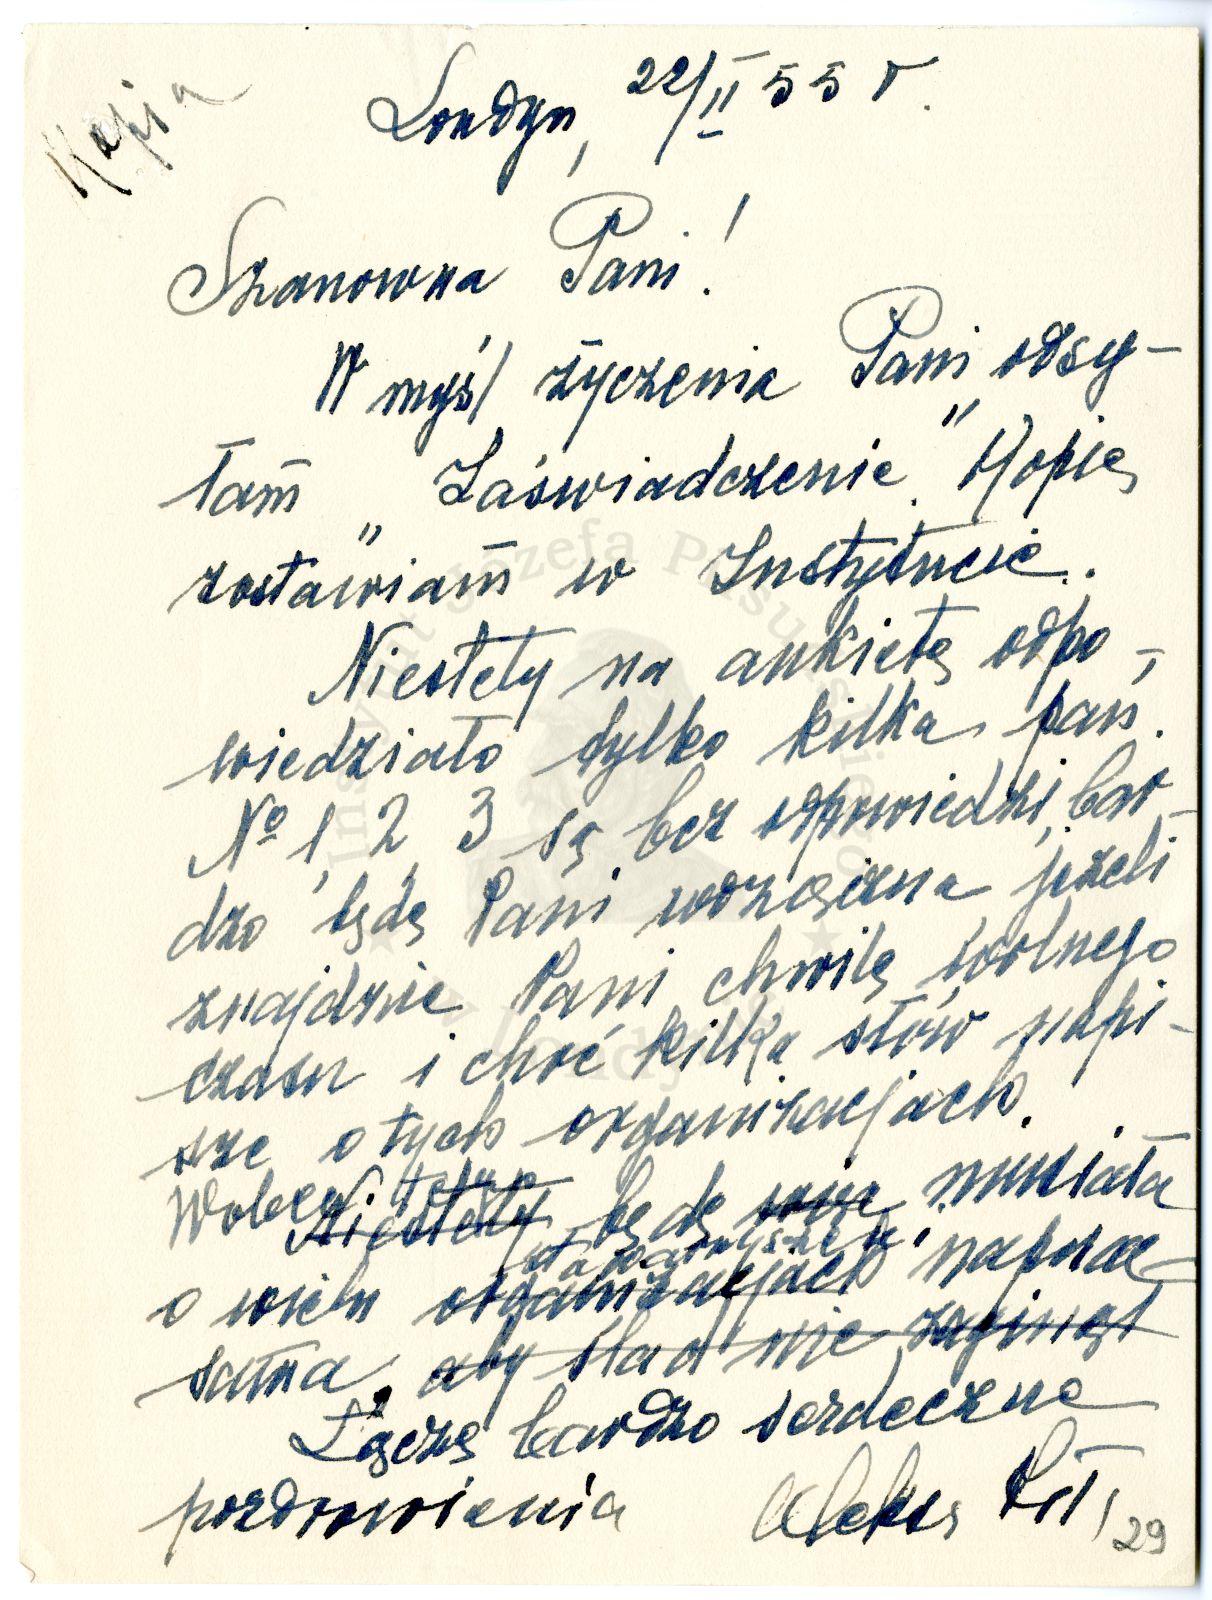 Kopja
Londyn, 22/II 55 r.
Szanowna Pani!
W myśl życzenia Pani odsy-
łam „Zaświadczenie". Kopię
zostawiam w Instytucie.
Niestety na ankietę odpo-
wiedziało tylko kilka pań.
№ 1, 2, 3 są bez odpowiedzi, bar-
dzo będę Pani wdzięczna jeżeli
znajdzie Pani chwilę wolnego
czasu i choć kilka słów napi-
sze o tych organizacjach.
Wobec tego
Niestety będę musiała
stowarzyszeń
o wielu organizacjach napisać
sama, aby ślad nie zaginął
Łączę bardzo serdeczne
pozdrowienia Aleks.
29
Instytut Józefa Piłsudskiego
w Londynie